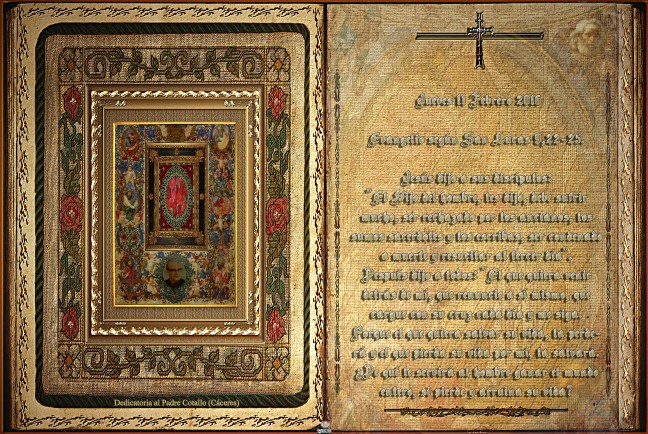 Dedicatoria al Padre Cotallo (Cáceres)
Jueves 11 Febrero 2016
Evangelio según San Lucas 9,22-25.
Jesús dijo a sus discípulos:
"El Hijo del hombre, les dijo, debe sufrir
mucho, ser rechazado por los ancianos, los
sumos sacerdotes y los escribas, ser condenado
a muerte y resucitar al tercer día".
Después dijo a todos: "El que quiera venir
detrás de mí, que renuncie a sí mismo, que
cargue con su cruz cada día y me siga.
Porque el que quiera salvar su vida, la perde-
rá y el que pierda su vida por mí, la salvará.
¿De qué le servirá al hombre ganar el mundo
entero, si pierde y arruina su vida?